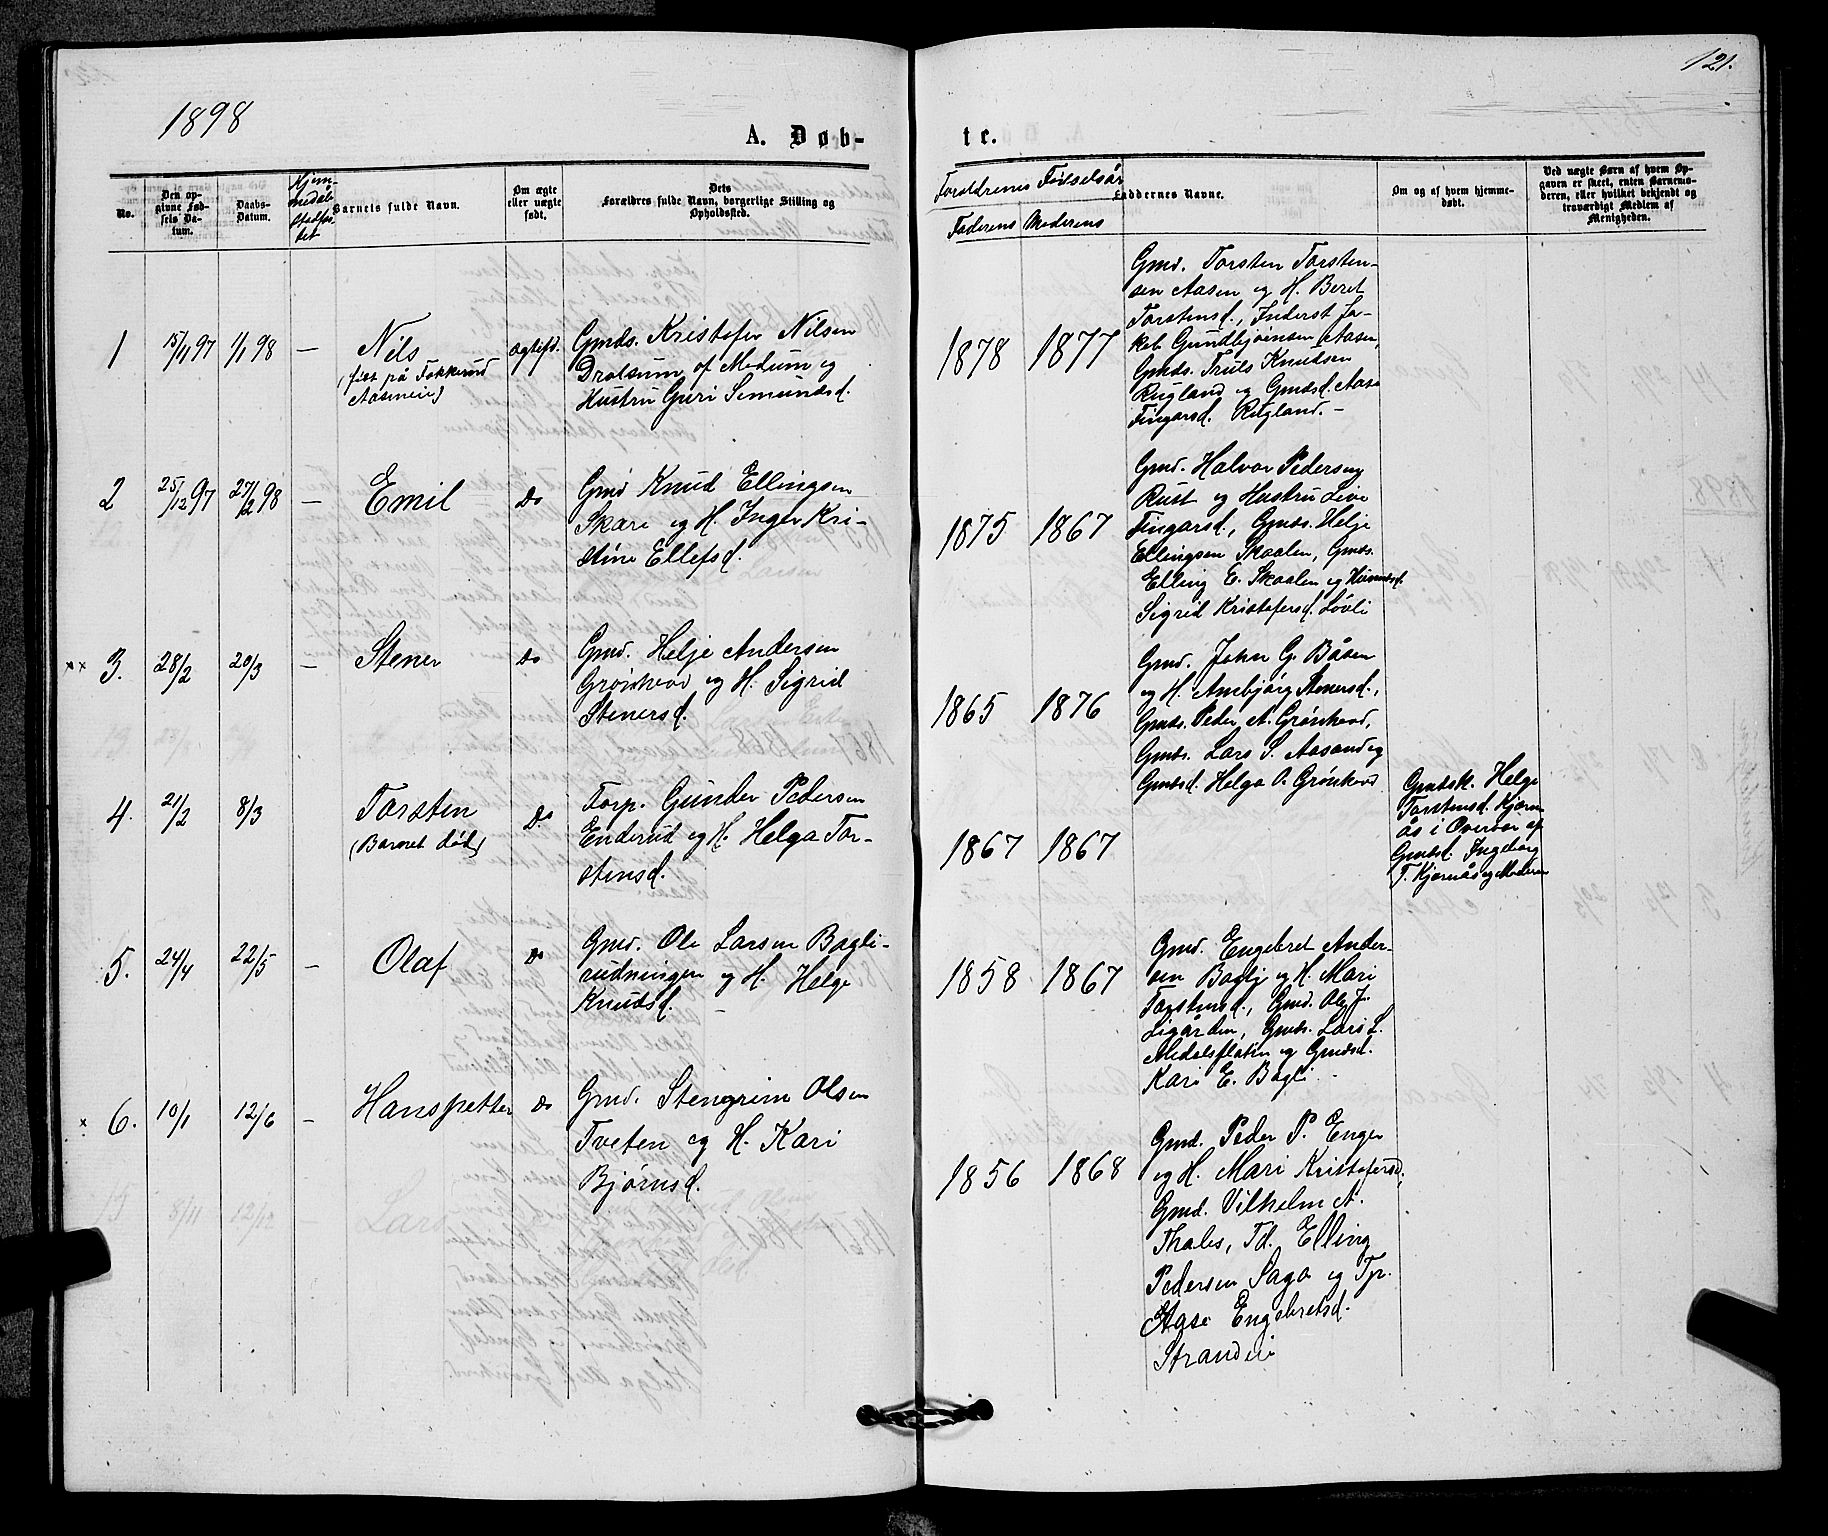 121.
1898
A. Døb-
te.
No.
Den op-
givne Fød-
sels Da-
tum.
Daabs-
Datum.
Hjem-
medåb
Stadfæ-
stet
Barnets fulde Navn.
Om ægte
eller uægte
født.
Dets
Forældres fulde Navn, borgerlige Stilling og
Opholdssted.
Forældrenes Fødselsår
Faderens
Moderens
Faddernes Navne.
Om og af hvem hjemme-
døbt.
Ved uægte Børn af hvem Op-
gaven er skeet, enten Barnemo-
deren, eller hvilket bekjendt og
troværdigt Medlem af
Menigheden.
1
15/11 97
1/1 98
—
Nils
(fist på Fokkerud
Aasmen)
ægtefd.
Gmds. Kristofer Nilsen
Drolsum af Modum og
Hustru Guri Simundsd.
1878
1877
Gmd. Torsten Torsten-
sen Aasen og H. Beret
Torstensd., Inderst Ja-
kob Gundbjørnsen Aasen,
Gmds. Truls Knudsen
Rugland og Gmdsd. Aase
Fingarsd. Rugland. –
2
25/12 97
27/2 98
—
Emil
Do
Gmd Knud Ellingsen
Skare og H. Inger Kri-
stine Ellefsd.
1875
1867
Gmd. Halvor Pedersen
Rust og Hustru Live
Fingarsd., Gmds. Helje
Ellingsen Skaalen, Gmds.
Elling E. Skaalen og
Sigrid Kristofersd. Løvli
xx 3.
28/2
20/3
—
Stener
Do
Gmd. Helje Andersen
Grønhovd og H. Sigrid
Stenersd.
1865
1876
Gmd. John G. Båsen
og H. Ambjørg Stenersd.,
Gmds. Peder A. Grønhovd,
Gmds. Lars S. Aasand og
Gmdsd. Helga A. Grønhovd
4.
21/2
8/3
Torsten
(Barnet død)
Do
Torp. Gunder Pedersen
Enderud og H. Helga Tor-
stensd.
1867
1867
Gmdsk. Helge
Torstensd. Kjørn-
ås i Overver af
Gmdsd. Ingeborg
T. Kjørnås og Moderen
5.
24/4
22/5
—
Olaf
Do
Gmd. Ole Larsen Bagli-
rudningen og H. Helge
Knudsd. –
1858
1867
Gmd. Engebret Ander-
sen Bagli og H. Mari
Torstensd., Gmd. Ole J.
Ligården, Gmds. Lars L.
Medalsflaten og Gmdsd.
Kari E. Bagli
x 6.
10/1
12/6
—
Hanspetter
Do
Gmd. Stengrim Olsen
Tveten og H. Kari
Bjørnsd.
1856
1868
Gmd. Peder P. Enger
og H. Mari Kristofersd.
Gmd. Vilhelm A.
Thales, Td. Elling
Pedersen Saga og Tp.
Aase Engebretsd.
Strandei